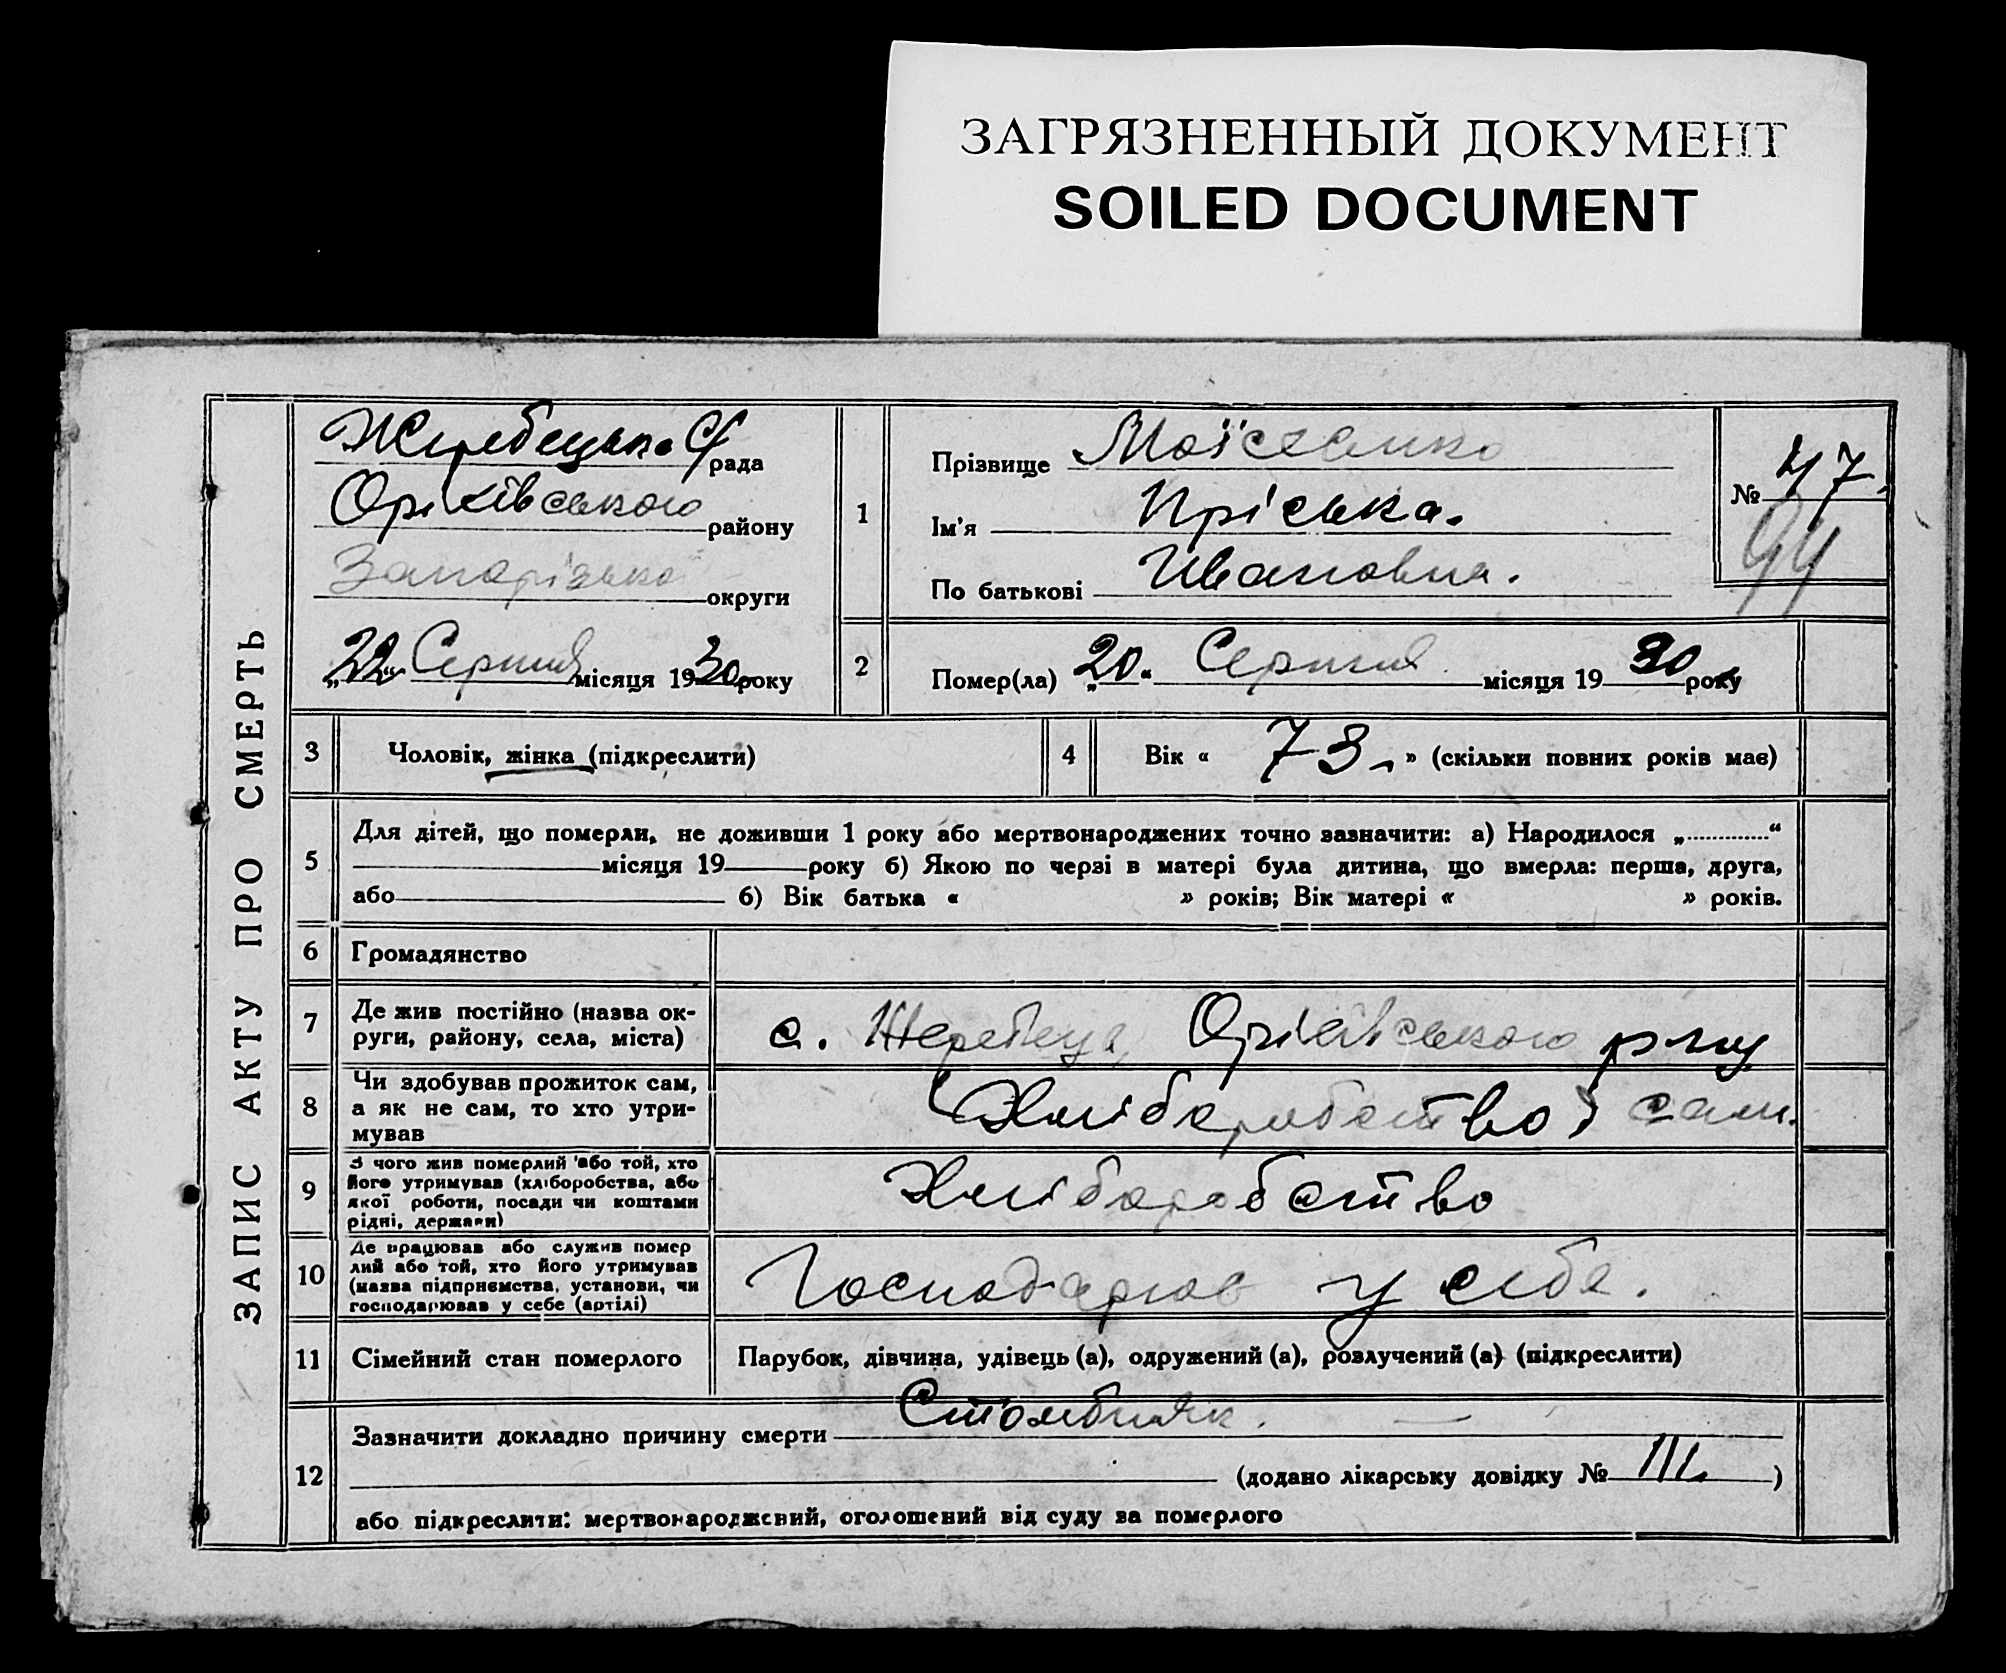 ЗАГРЯЗНЕННЫЙ ДОКУМЕНТ
SOILED DOCUMENT
ЗАПИС АКТУ ПРО СМЕРТЬ
Жеребецька С/рада
Оріхівського району
Запорізької округи
„22“ Серпня місяця 1930 року
1
Прізвище Моісеенко
Ім'я Пріська.
По батькові Ивановна.
№ 47.
94
2
Помер(ла) „20“ Серпня місяця 1930 року
3 Чоловік, жінка (підкреслити)
4 Вік « 73 » (скільки повних років має)
5
Для дітей, що померли, не доживши 1 року або мертвонароджених точно зазначити: а) Народилося „............“
місяця 19 року б) Якою по черзі в матері була дитина, що вмерла: перша, друга,
або б) Вік батька « » років; Вік матері « » років.
6 Громадянство
7
Де жив постійно (назва ок-
руги, району, села, міста)
с. Жеребець Оріхівського р-ну
8
Чи здобував прожиток сам,
а як не сам, то хто утри-
мував
Хліборобство сам.
9
З чого жив померлий або той, хто
його утримував (хліборобства, або
якої роботи, посади чи коштами
рідні, держави)
Хліборобство
10
Де працював або служив помер
лий або той, хто його утримував
(назва підприємства, установи, чи
господарював у себе (артілі)
Господарюв у себе.
11 Сімейний стан померлого
Парубок, дівчина, удівець (а), одружений (а), розлучений (а) (підкреслити)
12
Зазначити докладно причину смерти Стомбняк.
(додано лікарську довідку № )
або підкреслити: мертвонароджений, оголошений від суду за померлого